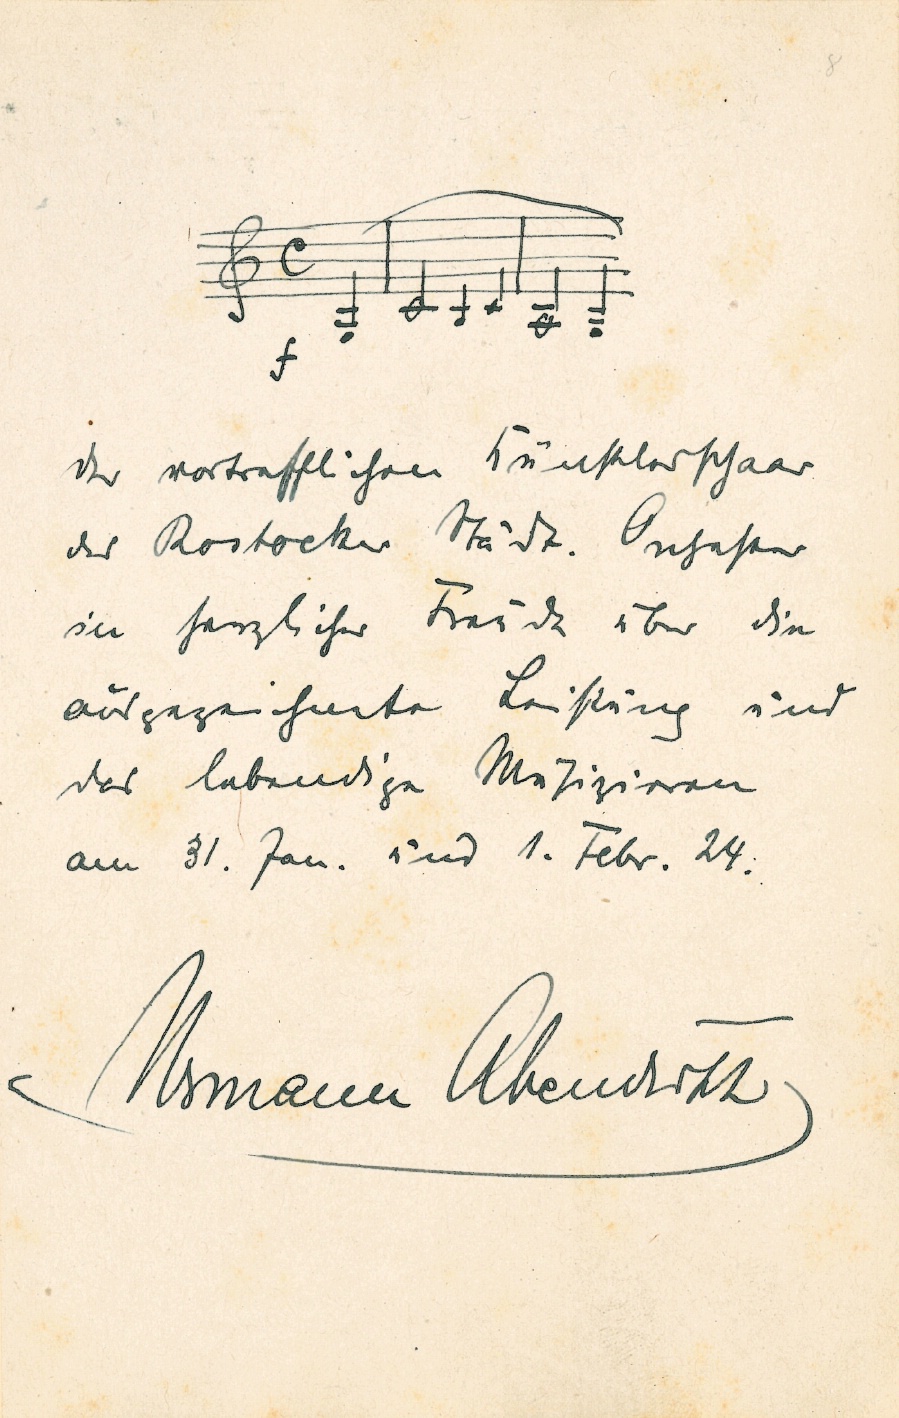 8
f
der vortrefflichen Künstlerschaar
des Rostocker Städt. Orchester
in herzlicher Freude über die
ausgezeichnete Leistung und
das lebendige Musizieren
am 31. Jan. und 1. Febr. 24.
Hermann Abendroth